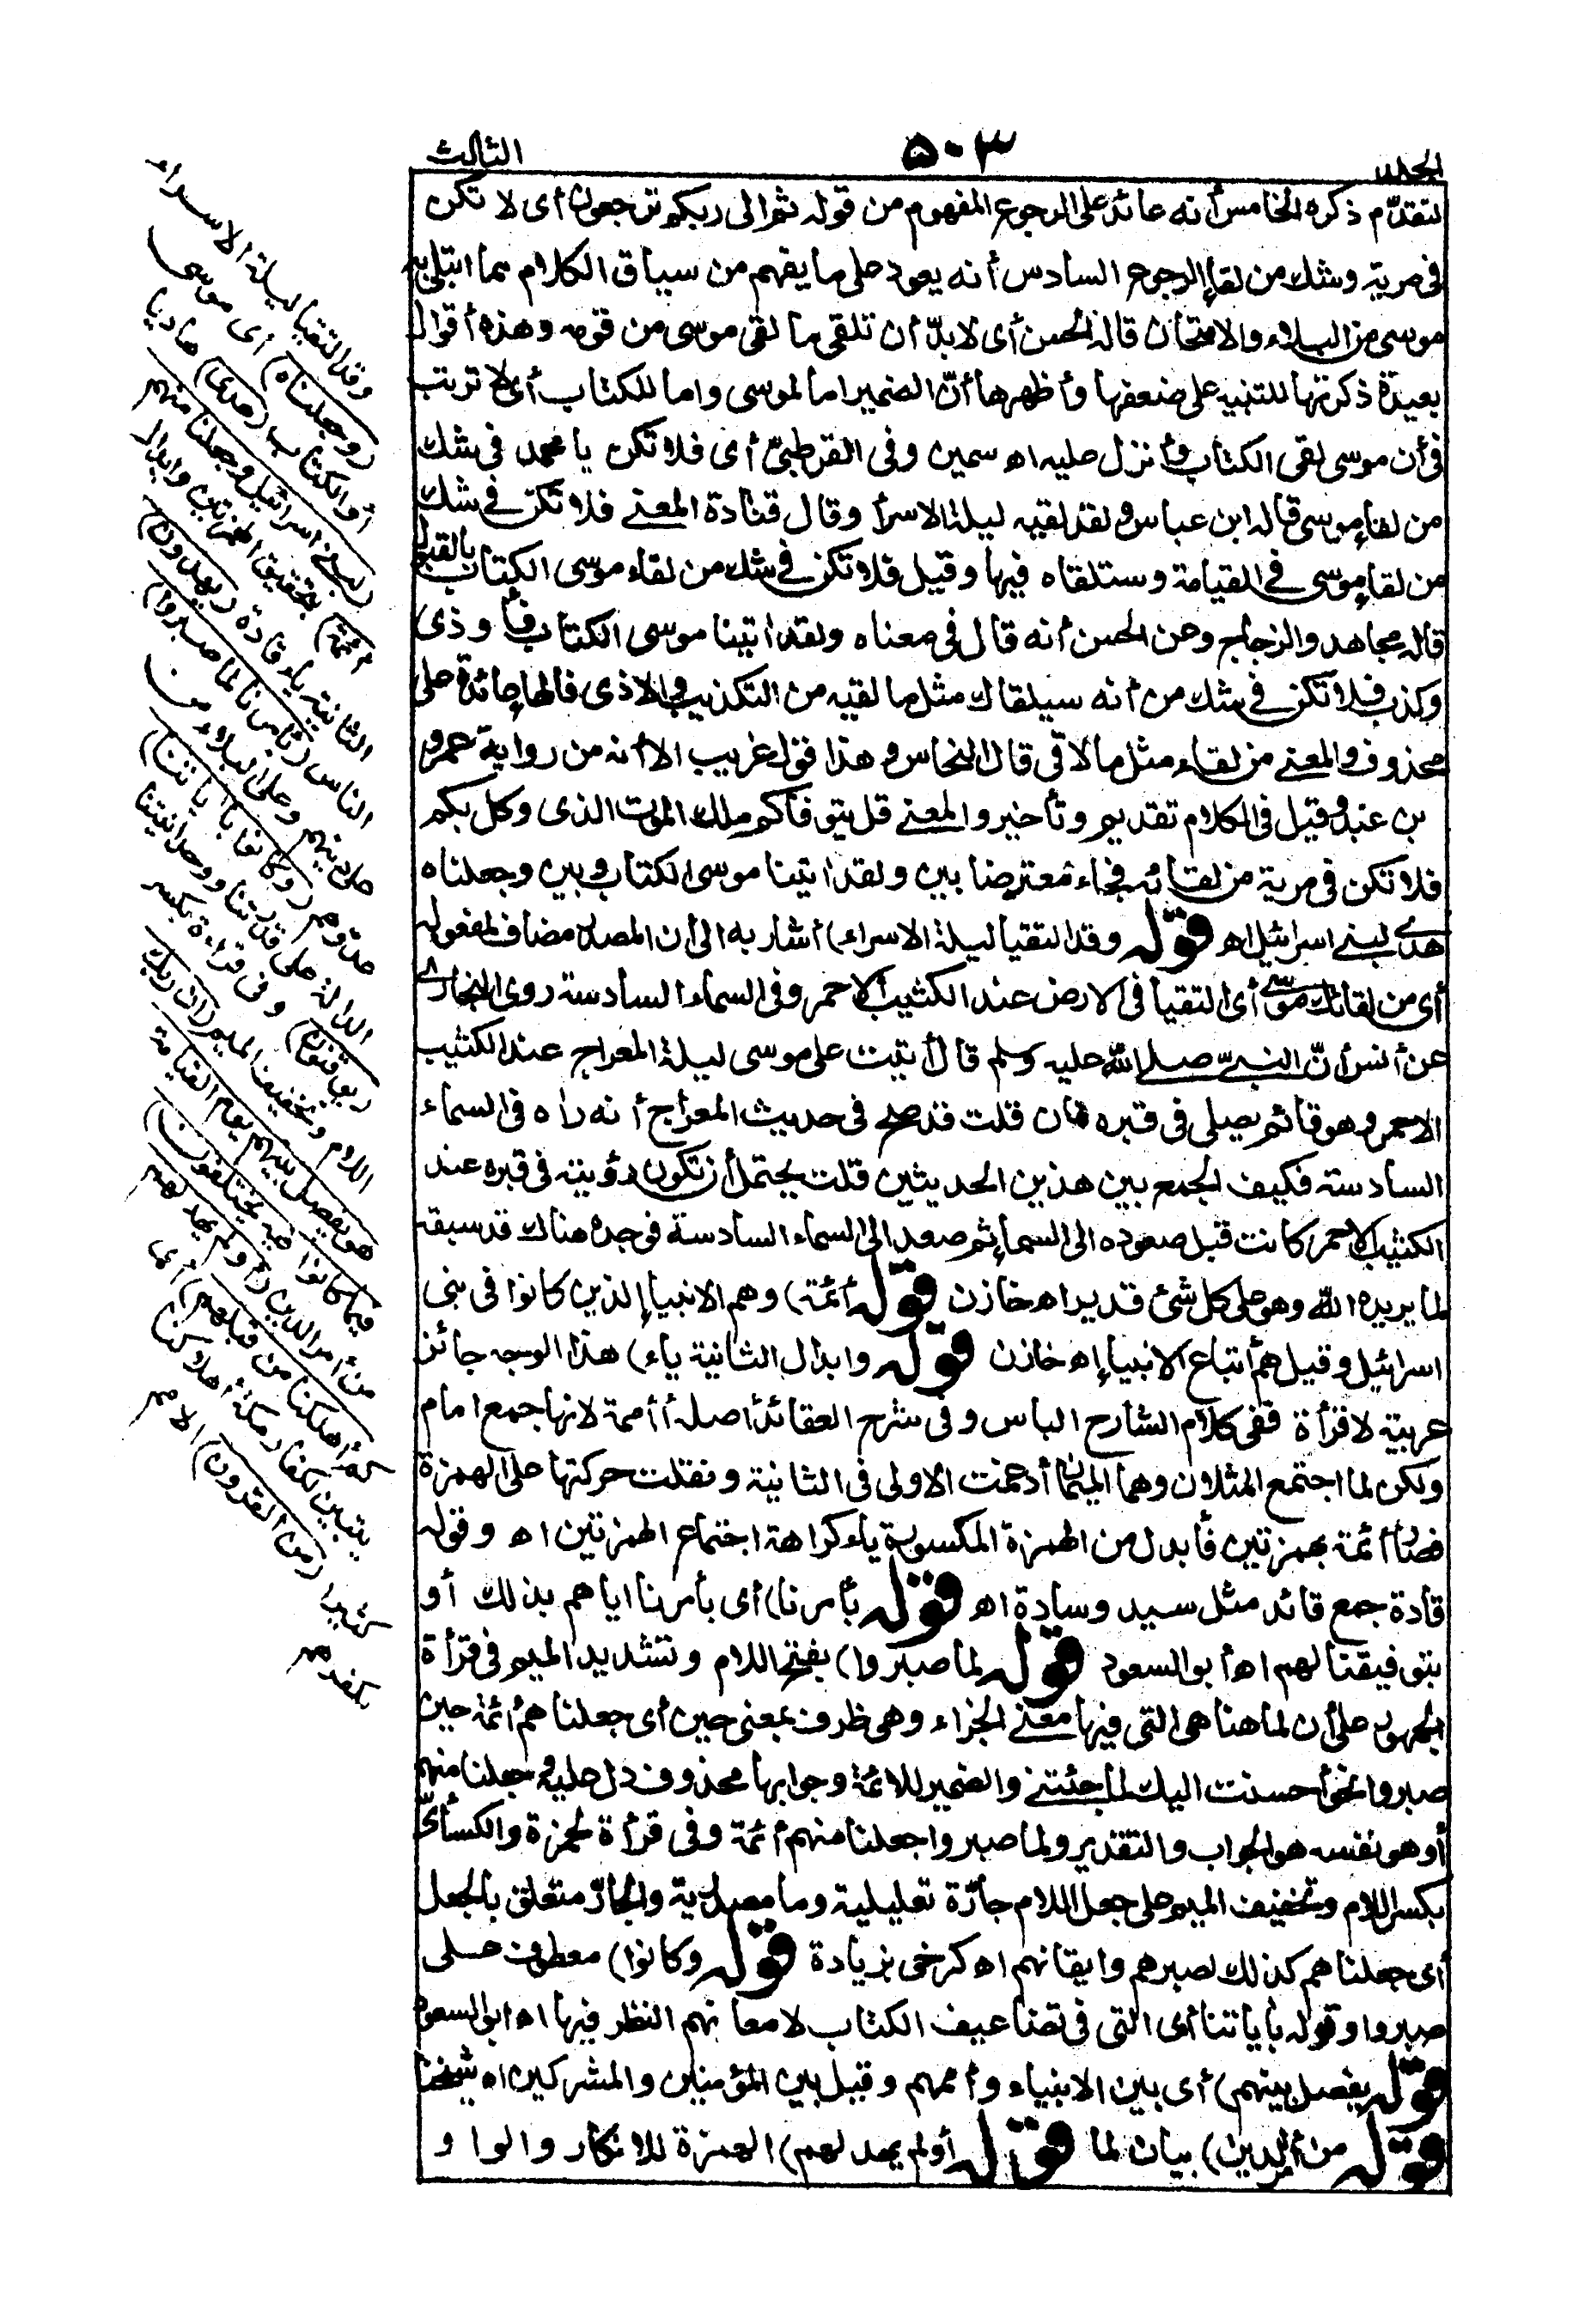 الجلد
٥٠٣
الثالث
لتقدّم ذكره الخامس أنه عائد على الرجوع المفهوم من قوله ثم الى ربكم ترجعون أى لا تكن
فى مرية وشك من لقاء الرجوع السادس أنه يعود على ما يفهم من سياق الكلام مما ابتلى به
موسى من البلاء والامتحان قاله الحسن أى لا بدّ أن تلقى ما لقى موسى من قومه وهذه أقوال
بعيدة ذكرتها للتنبيه على ضعفها وأظهرها أنّ الضمير اما لموسى واما للكتاب أى لا ترتب
فى أن موسى لقى الكتاب وأنزل عليه اه سمين وفى القرطبىّ أى فلا تكن يا محمد فى شك
من لقاء موسى قاله ابن عباس ولقد لقيه ليلة الاسرأ وقال قتادة المعنى فلا تكن فى شك
من لقاء موسى فى القيامة وستلقاه فيها وقيل فلا تكن فى شك من لقاء موسى الكتاب بالقبول
قاله مجاهد والزجاج وعن الحسن أنه قال فى معناه ولقد اتينا موسى الكتاب فأوذى
وكذب فلا تكن فى شك من أنه سيلقاك مثل ما لقيه من التكذيب والاذى فالهاء عائدة على
محذوف والمعنى من لقاء مثل ما لاقى قال النحاس وهذا قول غريب الا أنه من رواية عمرو
بن عبيد وقيل فى الكلام تقديم وتأخير والمعنى قل يتوفاكم ملك الموت الذى وكل بكم
فلا تكن فى مرية من لقائه فجاء معترضا بين ولقد اتينا موسى الكتاب وبين وجعلناه
هدى لبنى اسرائيل اه قوله وقد التقيا ليلة الاسراء) أشار به الى أن المصدر مضاف لمفعوله
أى من لقائك موسى أى التقيا فى الارض عند الكثيب الاحمر وفى السماء السادسة روى البخارى
عن أنس أنّ النبىّ صلى الله عليه وسلم قال أتيت على موسى ليلة المعراج عند الكثيب
الاحمر وهو قائم يصلى فى قبره فان قلت قد صح فى حديث المعراج أنه راه فى السماء
السادسة فكيف الجمع بين هذين الحديثين قلت يحتمل أن تكون رؤيته فى قبره عند
الكثيب الاحمر كانت قبل صعوده الى السماء ثم صعد الى السماء السادسة فوجده هناك قد سبقه
لما يريده الله وهو على كل شئ قدير اه خازن قوله أئمة) وهم الانبياء الذين كانوا فى بنى
اسرائيل وقيل هم أتباع الانبياء اه خازن قوله وابدال الثانية ياء) هذا الوجه جائز
عربية لا قرأة ففى كلام الشارح الباس وفى شرح العقائد أصله أأممة لانها جمع امام
ولكن لما اجتمع المثلان وهما الميمان أدغمت الاولى فى الثانية ونقلت حركتها على الهمزة
فصار أئمة بهمزتين فأبدل من الهمزة المكسورة ياء كراهة اجتماع الهمزتين اه وقوله
قادة جمع قائد مثل سيد وسادة اه قوله بأمرنا) أى بأمرنا اياهم بذلك أو
بتوفيقنا لهم اه أبو السعود قوله لما صبروا) بفتح اللام وتشديد الميم فى قرأة
الجمهور على أن لما هنا هى التى فيها معنى الجزاء وهى ظرف بمعنى حين أى جعلناهم أئمة حين
صبروا نحو أحسنت اليك لما جئتنى والضمير للائمة وجوابها محذوف دل عليه وجعلنا منهم
أو هو نفسه هو الجواب والتقدير ولما صبروا جعلنا منهم أئمة وفى قرأة لحمزة والكسائىّ
بكسر اللام وتخفيف الميم على جعل اللام جارّة تعليلية وما مصدرية والجارّ متعلق بالجعل
أى جعلناهم كذلك لصبرهم وايقانهم اه كرخى بزيادة قوله وكانوا) معطوف على
صبروا وقوله بأياتنا أى التى فى تضاعيف الكتاب لامعانهم النظر فيها اه ابو السعود
قوله يفصل بينهم) أى بين الانبياء وأممهم وقيل بين المؤمنين والمشركين اه شيخنا
قوله من أمر الدين) بيان لما قوله أولم يهد لهم) الهمزة للانكار والواو
وقد التقيا ليلة الاسراء
(وجعلناه) أى موسى
أو الكتاب (هدى) هاديا
(لبنى اسرائيل وجعلنا منهم
أئمة) بتحقيق الهمزتين وابدال
الثانية ياء قادة (يهدون)
الناس (بأمرنا لما صبروا)
على دينهم وعلى البلاء من
عدوهم (وكانوا بأياتنا)
الدالة على قدرتنا ووحدانيتنا
(يوقنون) وفى قراءة بكسر
اللام وتخفيف الميم (ان ربك
هو يفصل بينهم يوم القيامة
فيما كانوا فيه يختلفون)
من أمر الدين (أولم يهد لهم
كم أهلكنا من قبلهم) أى
يتبين لكفار مكة أهلاكنا
كثيرا (من القرون) الامم
بكفرهم